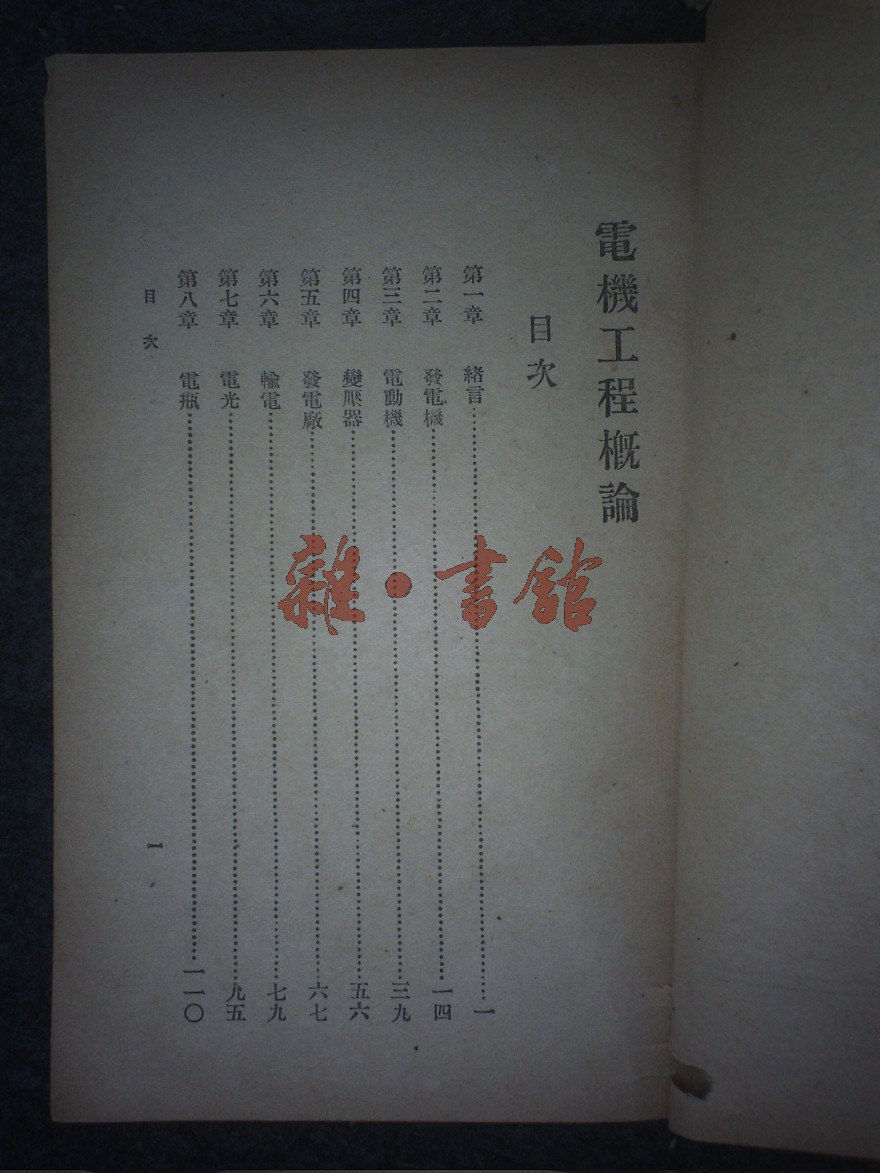 電機工程概論
目次
第一章 緒言………一
第二章 發電機………一四
第三章 電動機………三九
第四章 變壓器………五六
第五章 發電廠………六七
第六章 輸電………七九
第七章 電光………九五
第八章 電瓶………一一〇
目次 一
雜·書館